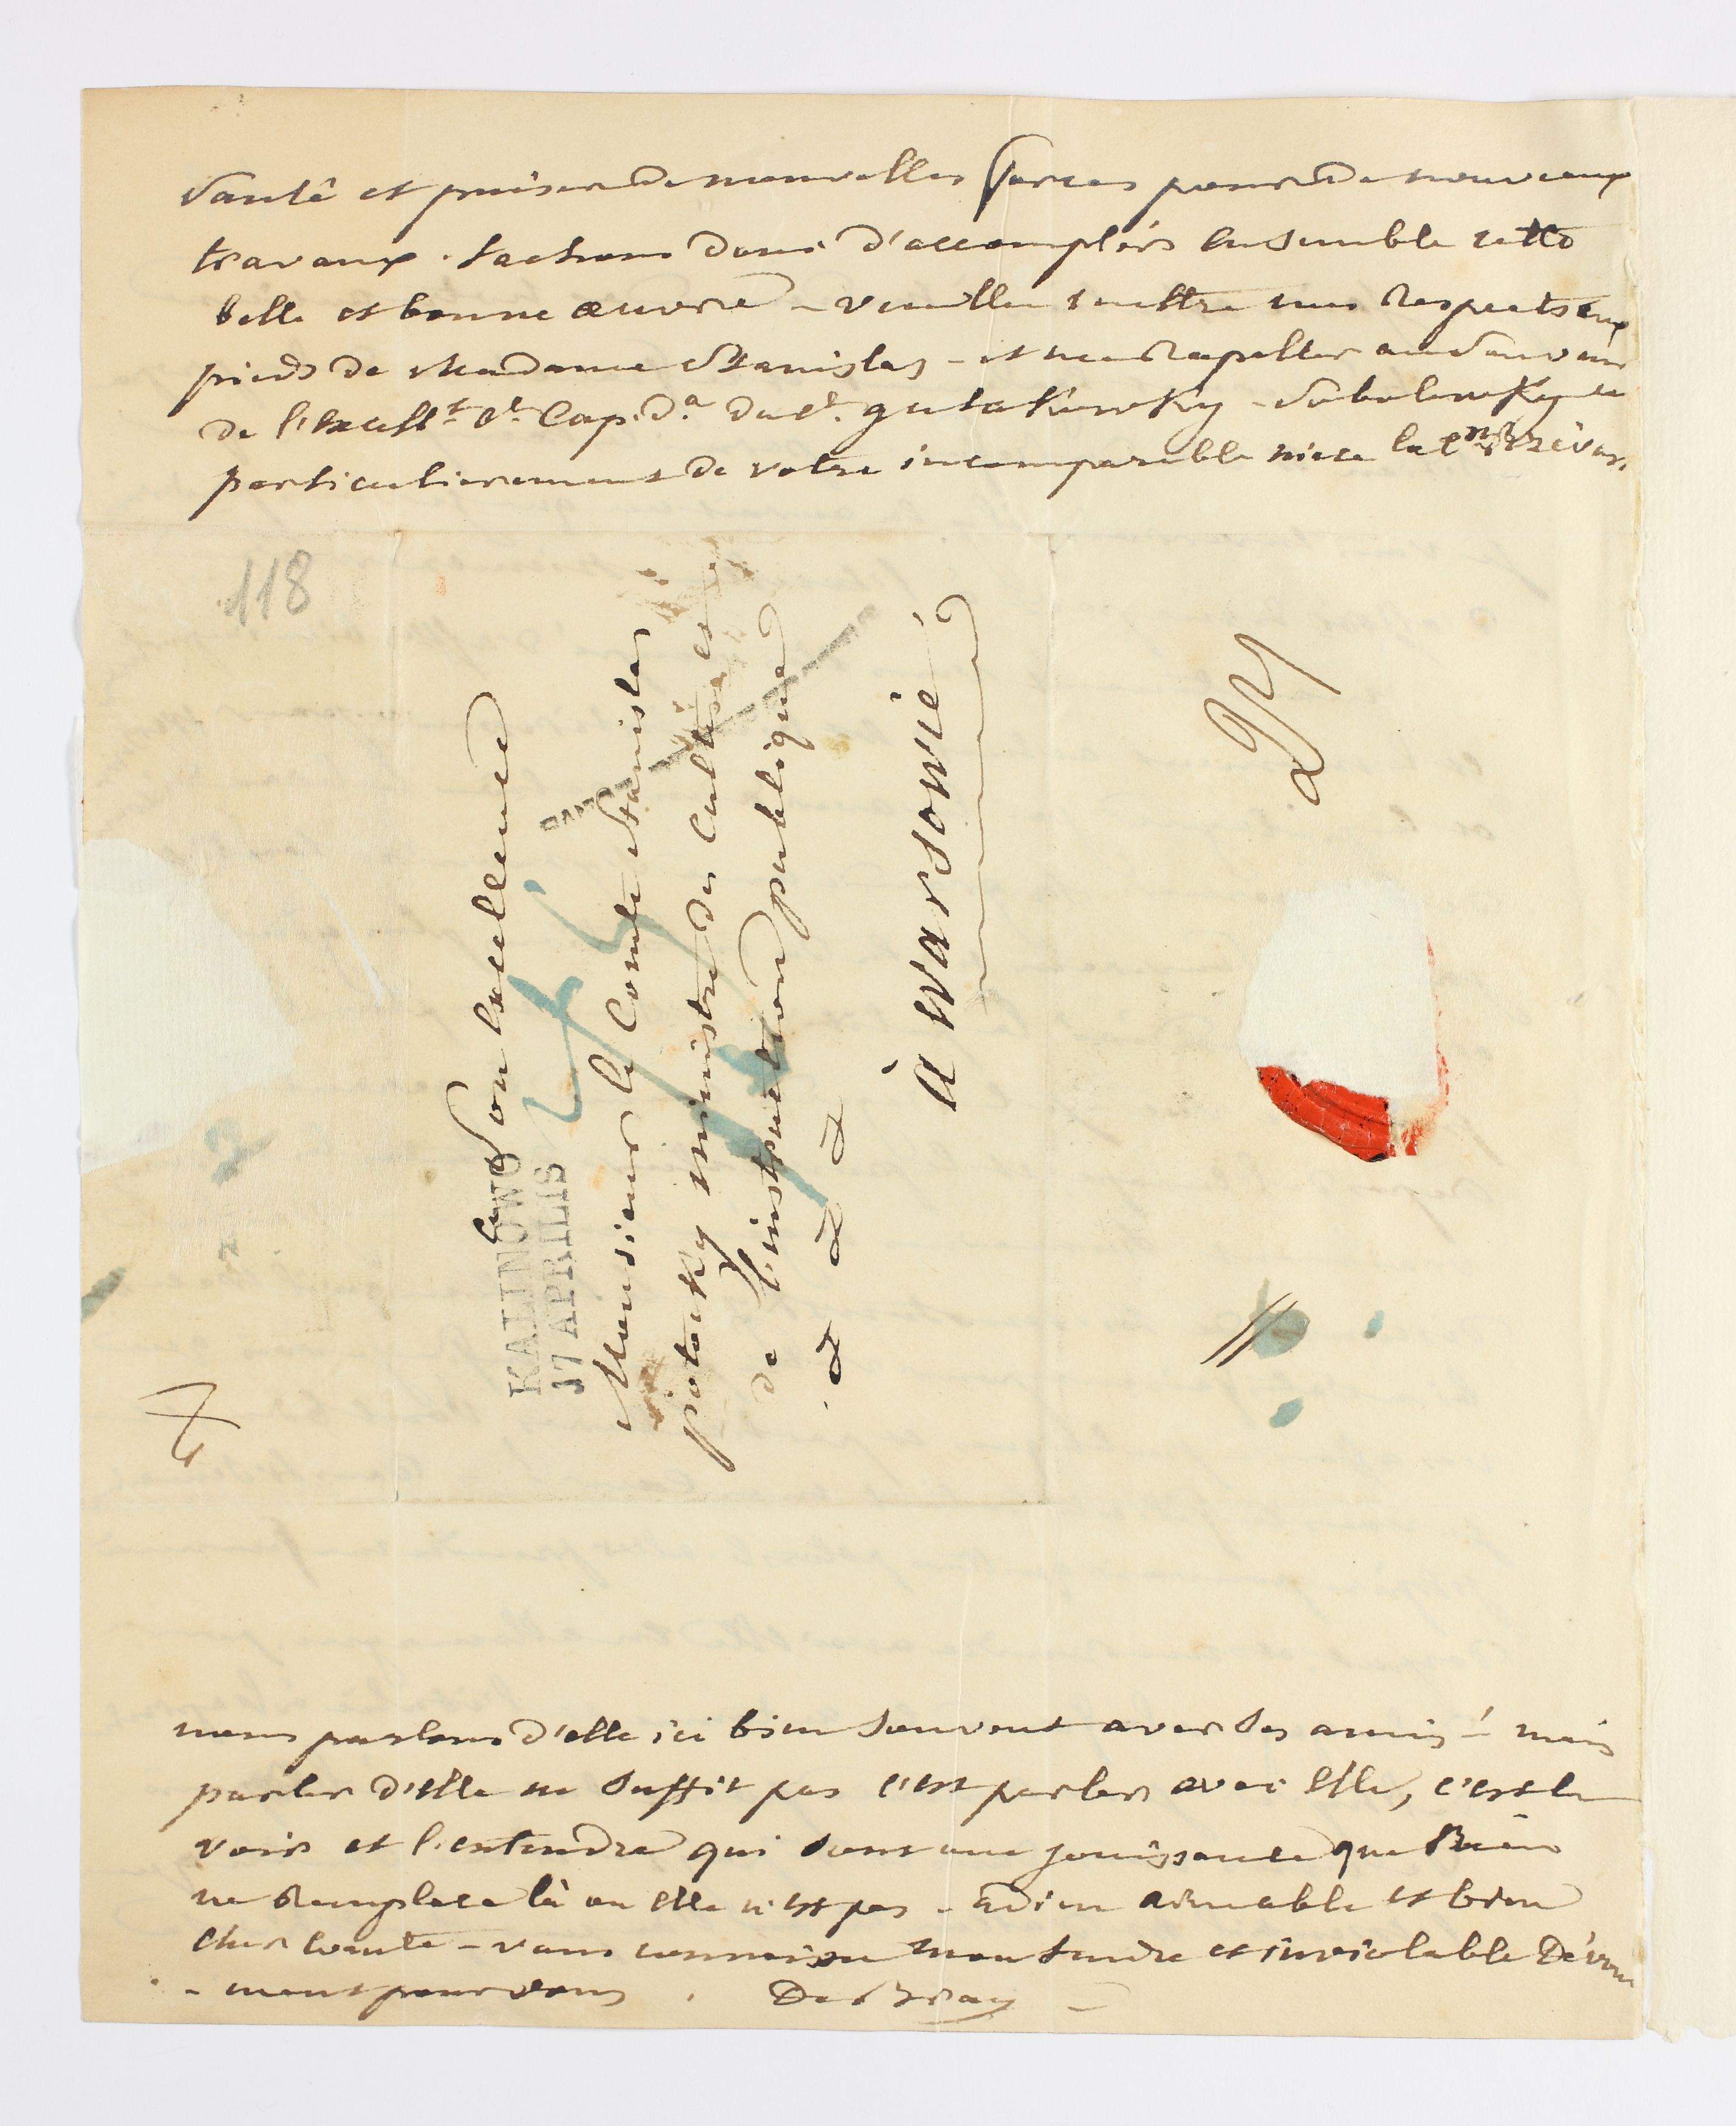 santé et puiser de nouvelles forces pour de nouveaux
travaux. tachons donc d'accomplir ensemble cette
belle et bonne œuvre – veuillez mettre mes respects aux
pieds de Madame Stanislas – et me rapeller au souvenir
de l'Excellt. Ct. du Ct. gutakowsky – Sobolewsky et
particulierement de votre incomparable niece la
118
à Son Excellence
KALINOWO
17 APRILIS
Monsieur le Comte Stanislas
potocky ministre des Cultes et
de l'instruction publique
à à à à
à Warsovie
nous parlons d'elle ici bien souvent avec ses amis – mais
parler d'elle ne suffit pas c'est parler avec Elle, c'est la
voir et l'entendre qui sont une jouissance que Rien
ne Remplace là ou elle n'est pas – adieu aimable et bien
cher Comte – vous connaissez mon tendre et inviolable Dévou
- ment pour vous. De Bray –